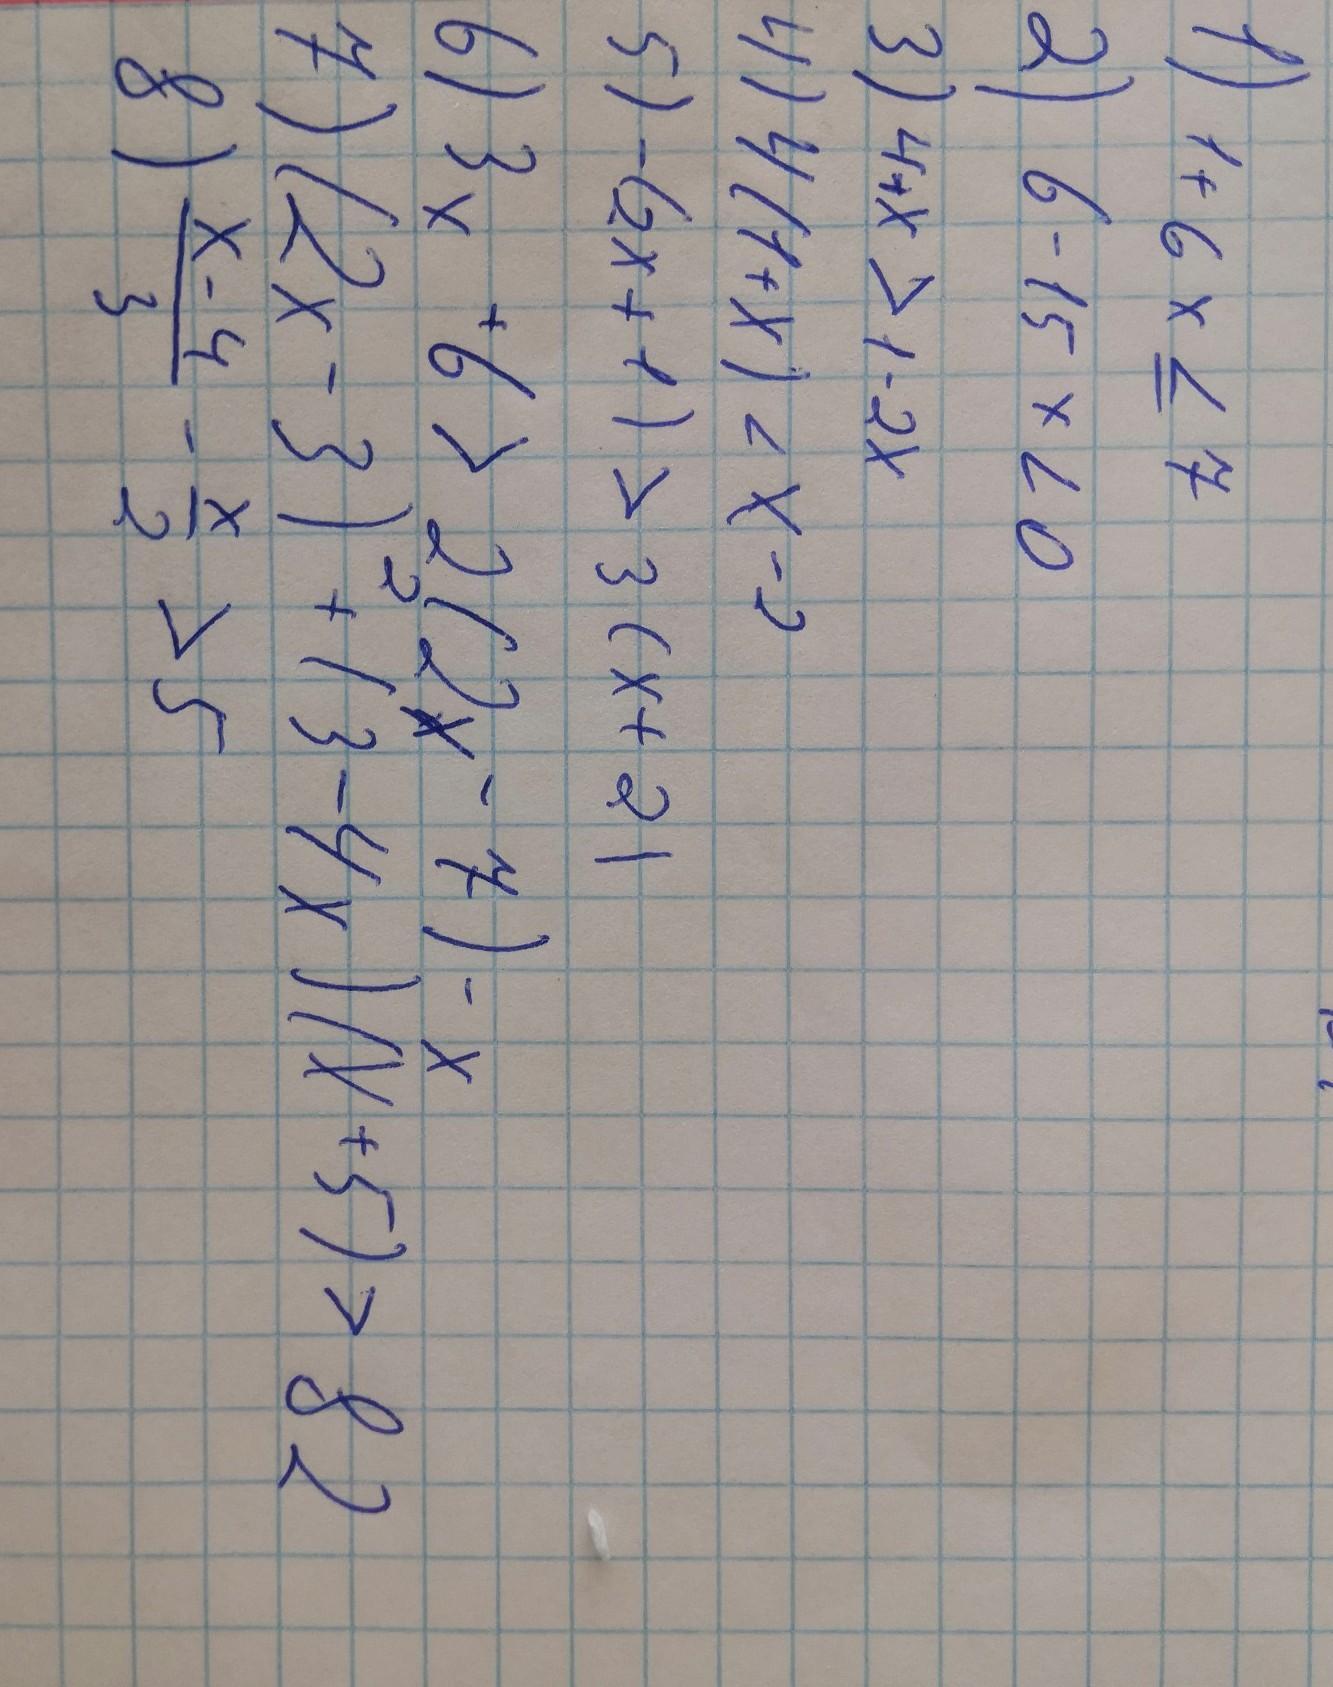 1) 1+6x ≤ 7
2) 6-15x < 0
3) 4+x > 1-2x
4) 4(1+x) < x-2
5) -(2x+1) > 3(x+2)
6) 3x +6 > 2(2x-7)-x
7) (2x-3)² + (3-4x)(x+5) > 82
8) \frac{x-4}{3} - \frac{x}{2} > 5